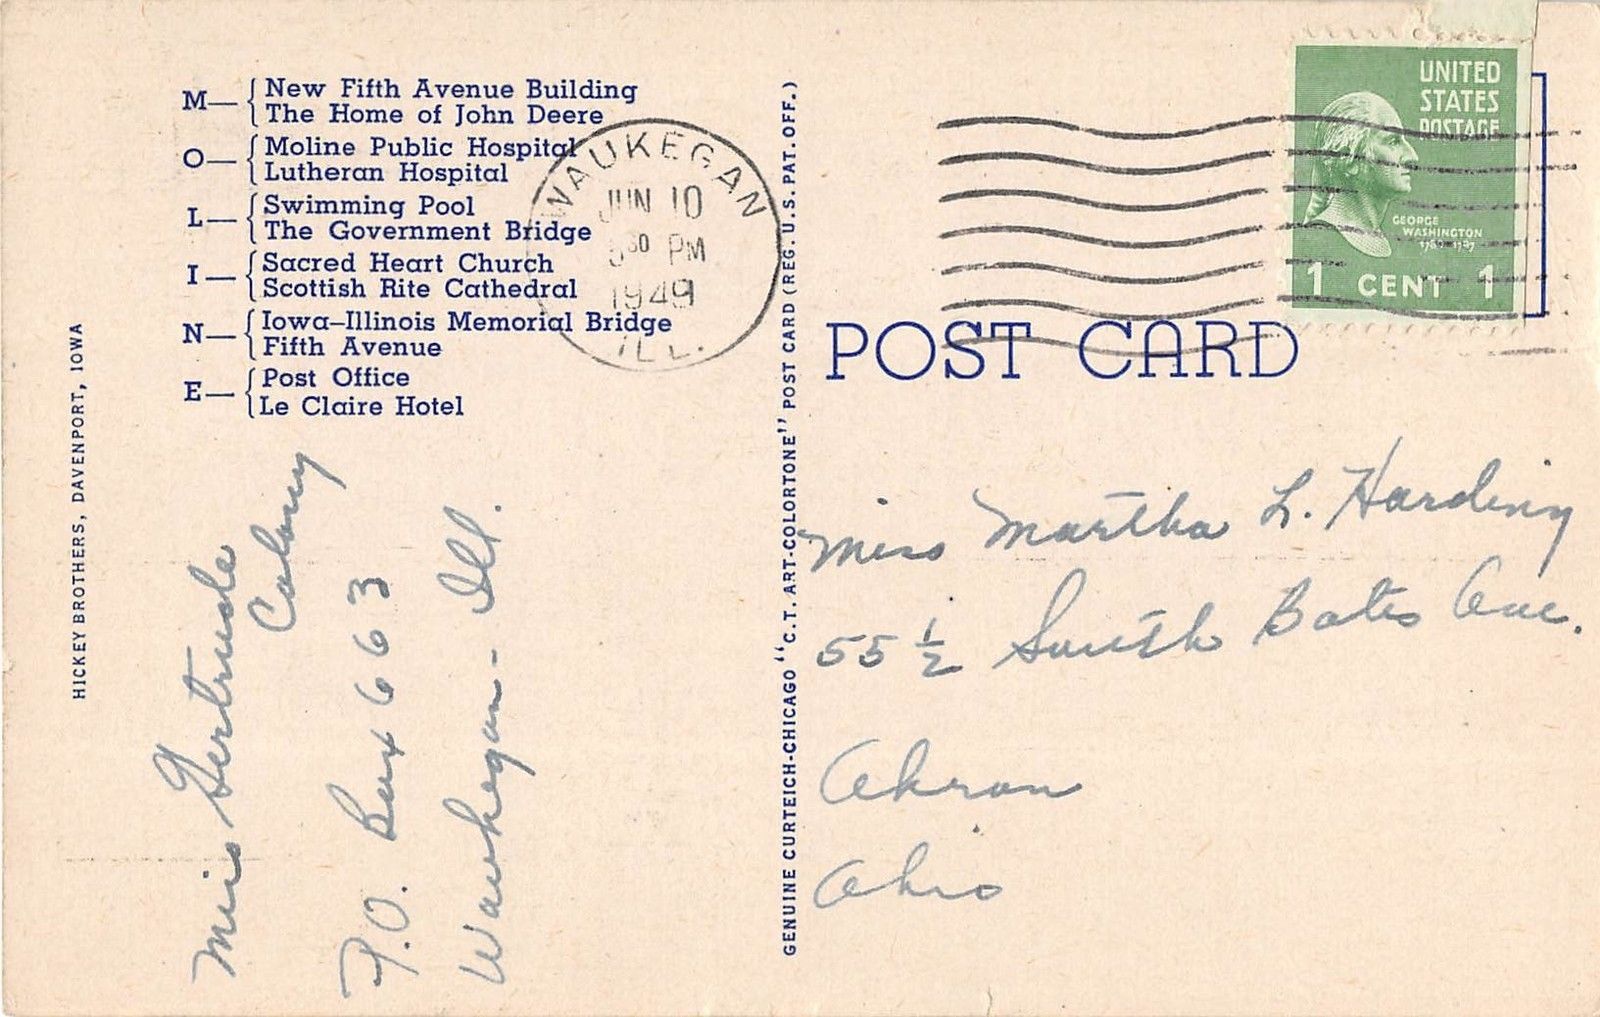 M— New Fifth Avenue Building
The Home of John Deere
O— Moline Public Hospital
Lutheran Hospital
L— Swimming Pool
The Government Bridge
I— Sacred Heart Church
Scottish Rite Cathedral
N— Iowa–Illinois Memorial Bridge
Fifth Avenue
E— Post Office
Le Claire Hotel
HICKEY BROTHERS, DAVENPORT, IOWA
WAUKEGAN
JUN 10
30 PM
1949
ILL.
Miss Gertrude
Colony
P.O. Box 663
Waukegan - Ill.
GENUINE CURTEICH-CHICAGO "C.T. ART-COLORTONE" POST CARD (REG. U.S. PAT. OFF.)
UNITED
STATES
POSTAGE
GEORGE
WASHINGTON
1 CENT 1
POST CARD
Miss Martha L. Harding
55 1/2 South Bates Ave.
Akron
Ohio